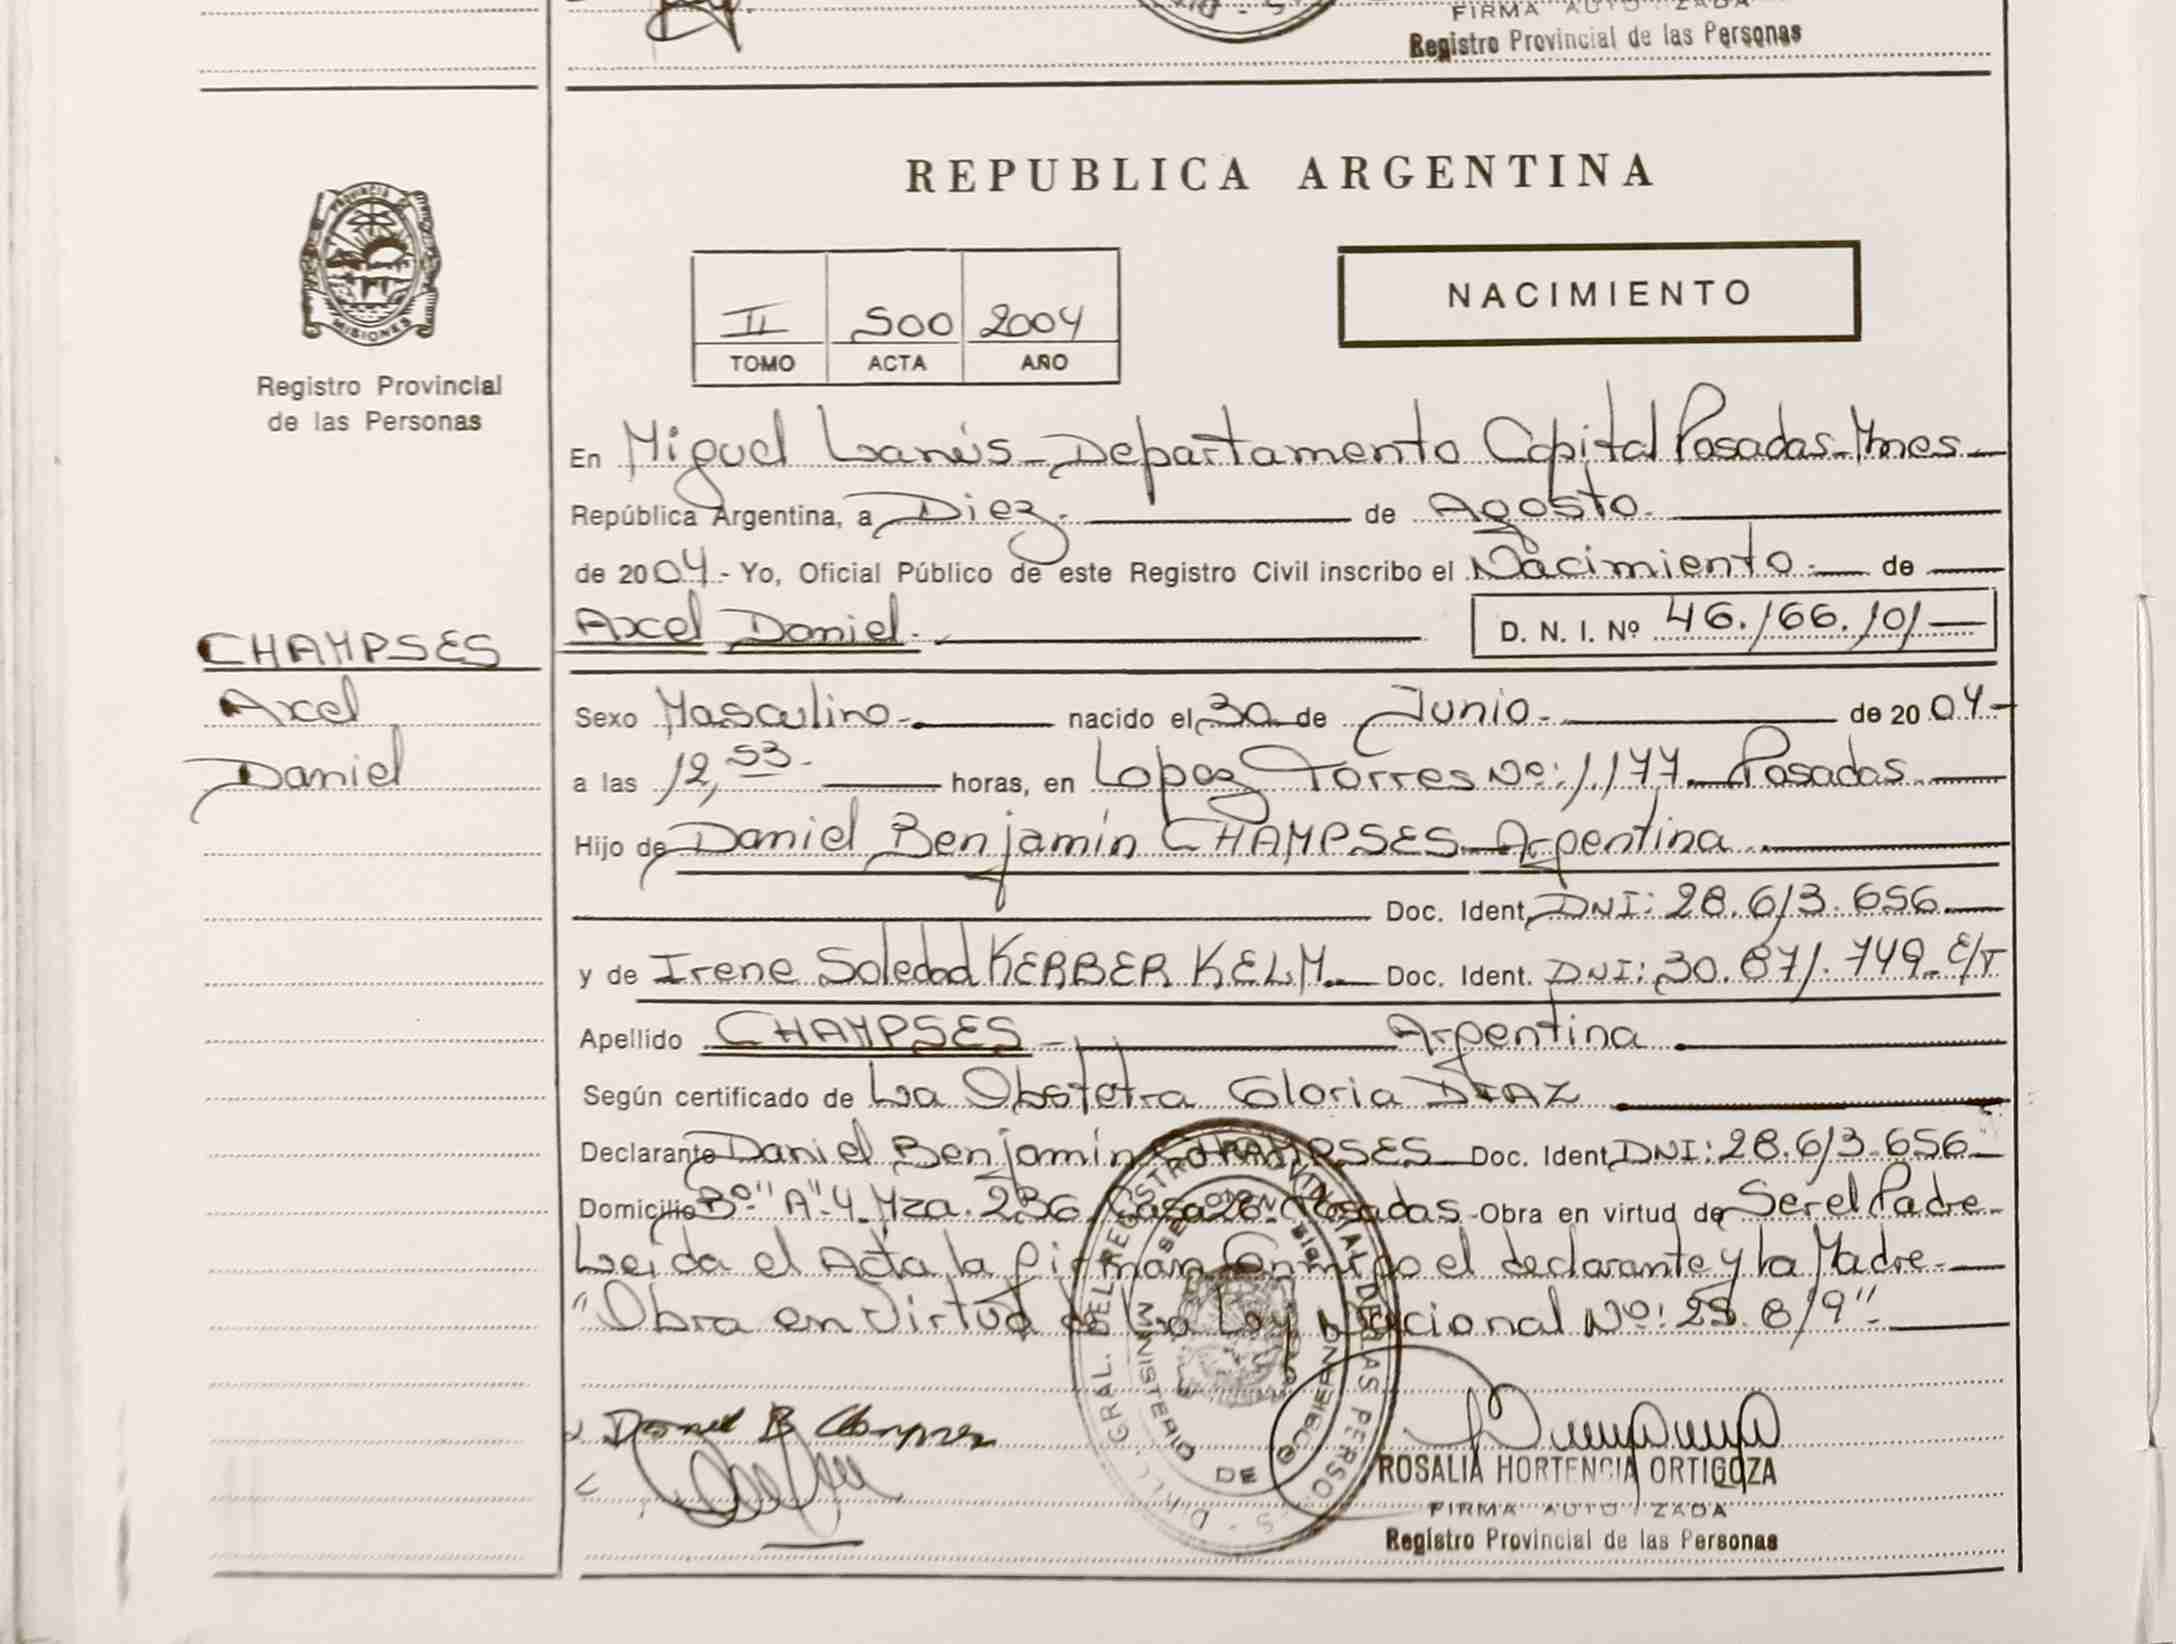 FIRMA AUTO ZADA
Registro Provincial de las Personas
REPUBLICA ARGENTINA
PROVINCIA DE
MISIONES
Registro Provincial
de las Personas
II 500 2004
TOMO ACTA AÑO
NACIMIENTO
En Miguel Lanús - Departamento Capital Posadas - Mnes -
República Argentina, a Diez. de Agosto.
de 2004 - Yo, Oficial Público de este Registro Civil inscribo el Nacimiento. de
Axcel Daniel. D. N. I. Nº 46.166.101
CHAMPSES
Axcel
Daniel
Sexo Masculino. nacido el 30 de Junio. de 2004-
a las 12,53. horas, en Lopez Torres Nº: 1.177. Posadas.
Hijo de Daniel Benjamín CHAMPSES - Argentina.
Doc. Ident. DNI: 28.613.656.
y de Irene Soledad KERBER KELM. Doc. Ident. DNI: 30.871.749. E/T
Apellido CHAMPSES - Argentina.
Según certificado de La Obstetra Gloria DIAZ
Declarante Daniel Benjamín CHAMPSES Doc. Ident. DNI: 28.613.656-
Domicilio Bº "A" 4. Mza. 236. Casa 26. Posadas - Obra en virtud de Ser el Padre
Leída el Acta la firman Conmigo el declarante y la Madre.
"Obra en Virtud de La Ley Nacional Nº: 25.819".
DIR. GRAL. DEL REGISTRO PROVINCIAL DE LAS PERSONAS
MINISTERIO DE GOBIERNO
Daniel B Champses
ROSALIA HORTENCIA ORTIGOZA
FIRMA AUTO ZADA
Registro Provincial de las Personas